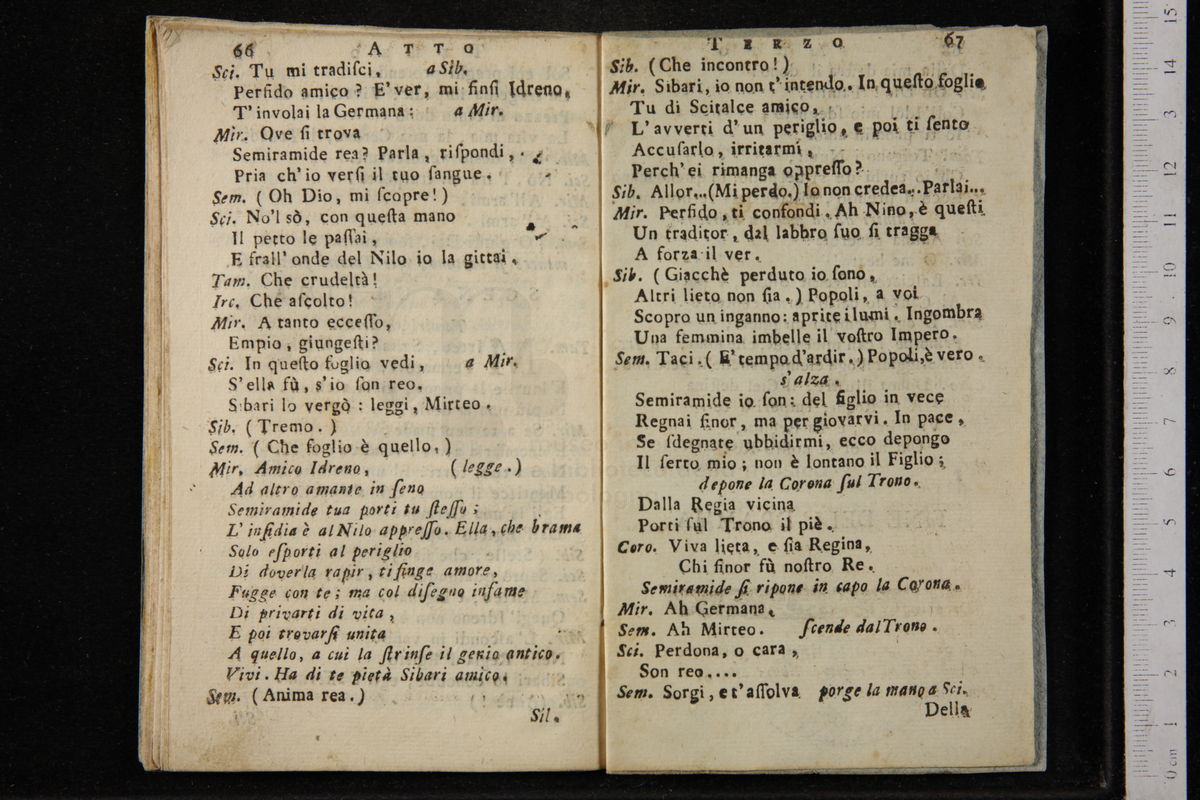 66 ATTO
Sci. Tu mi tradiſci, a Sib.
Perfido amico? E'ver, mi finſi Idreno,
T'involai la Germana: a Mir.
Mir. Ove ſi trova
Semiramide rea? Parla, riſpondi,
Pria ch'io verſi il tuo ſangue.
Sem. (Oh Dio, mi ſcopre!)
Sci. No'l sò, con queſta mano
Il petto le paſſai,
E frall'onde del Nilo io la gittai.
Tam. Che crudeltà!
Irc. Che aſcolto!
Mir. A tanto ecceſſo,
Empio, giungeſti?
Sci. In queſto foglio vedi, a Mir.
S'ella fù, s'io ſon reo.
Sibari lo vergò: leggi, Mirteo.
Sib. (Tremo.)
Sem. (Che foglio è quello,)
Mir. Amico Idreno, (legge.)
Ad altro amante in ſeno
Semiramide tua porti tu ſteſſo;
L'inſidia è al Nilo appreſſo. Ella, che brama
Solo eſporti al periglio
Di doverla rapir, ti finge amore,
Fugge con te; ma col diſegno infame
Di privarti di vita,
E poi trovarſi unita
A quello, a cui la ſtrinſe il genio antico.
Vivi. Ha di te pietà Sibari amico.
Sem. (Anima rea.)
Sil.
TERZO 67
Sib. (Che incontro!)
Mir. Sibari, io non t'intendo. In queſto foglio
Tu di Scitalce amico,
L'avverti d'un periglio, e poi ti ſento
Accuſarlo, irritarmi,
Perch'ei rimanga oppreſſo?
Sib. Allor...(Mi perdo.) Io non credea... Parlai...
Mir. Perfido, ti confondi. Ah Nino, è queſti
Un traditor, dal labbro ſuo ſi tragga
A forza il ver.
Sib. (Giacchè perduto io ſono,
Altri lieto non ſia.) Popoli, a voi
Scopro un inganno: aprite i lumi. Ingombra
Una femmina imbelle il voſtro Impero.
Sem. Taci. (E'tempo d'ardir.) Popoli, è vero.
s'alza.
Semiramide io ſon: del figlio in vece
Regnai finor, ma per giovarvi. In pace,
Se ſdegnate ubbidirmi, ecco depongo
Il ſerto mio; non è lontano il Figlio;
depone la Corona ſul Trono.
Dalla Regia vicina
Porti ſul Trono il piè.
Coro. Viva lieta, e ſia Regina,
Chi finor fù noſtro Re.
Semiramide ſi ripone in capo la Corona.
Mir. Ah Germana,
Sem. Ah Mirteo. ſcende dal Trono.
Sci. Perdona, o cara,
Son reo....
Sem. Sorgi, e t'aſſolva porge la mano a Sci.
Della
0 cm 1 2 3 4 5 6 7 8 9 10 11 12 13 14 15